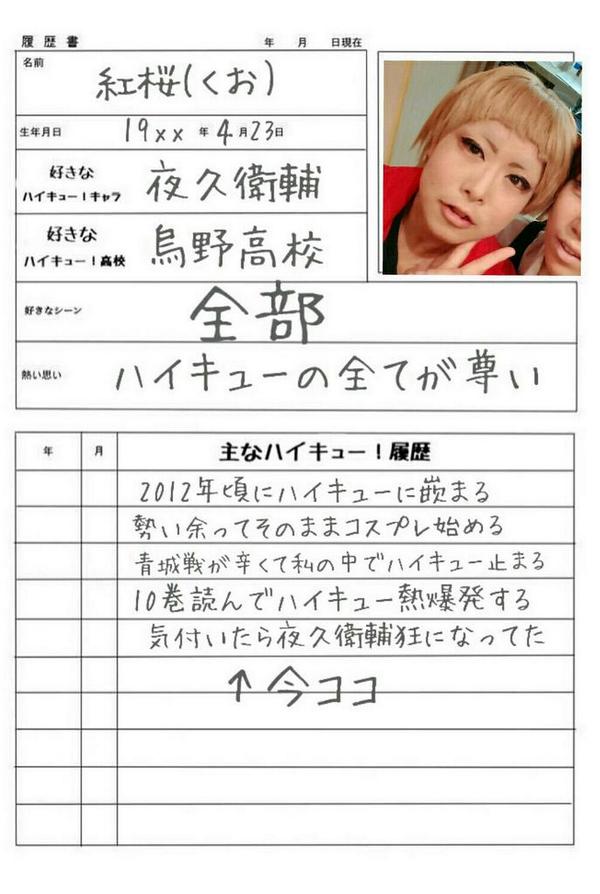 履歴書 年 月 日現在
名前 紅桜(くお)
生年月日 19xx 年 4月23日
好きな
ハイキュー!キャラ 夜久衛輔
好きな
ハイキュー!高校 烏野高校
好きなシーン 全部
熱い思い ハイキューの全てが尊い
年 月 主なハイキュー!履歴
2012年頃にハイキューに嵌まる
勢い余ってそのままコスプレ始める
青城戦が辛くて私の中でハイキュー止まる
10巻読んでハイキュー熱爆発する
気付いたら夜久衛輔狂になってた
↑今ココ